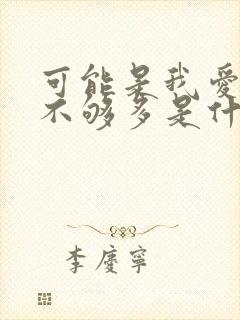 可能是我爱
不够多是什
李慶寧